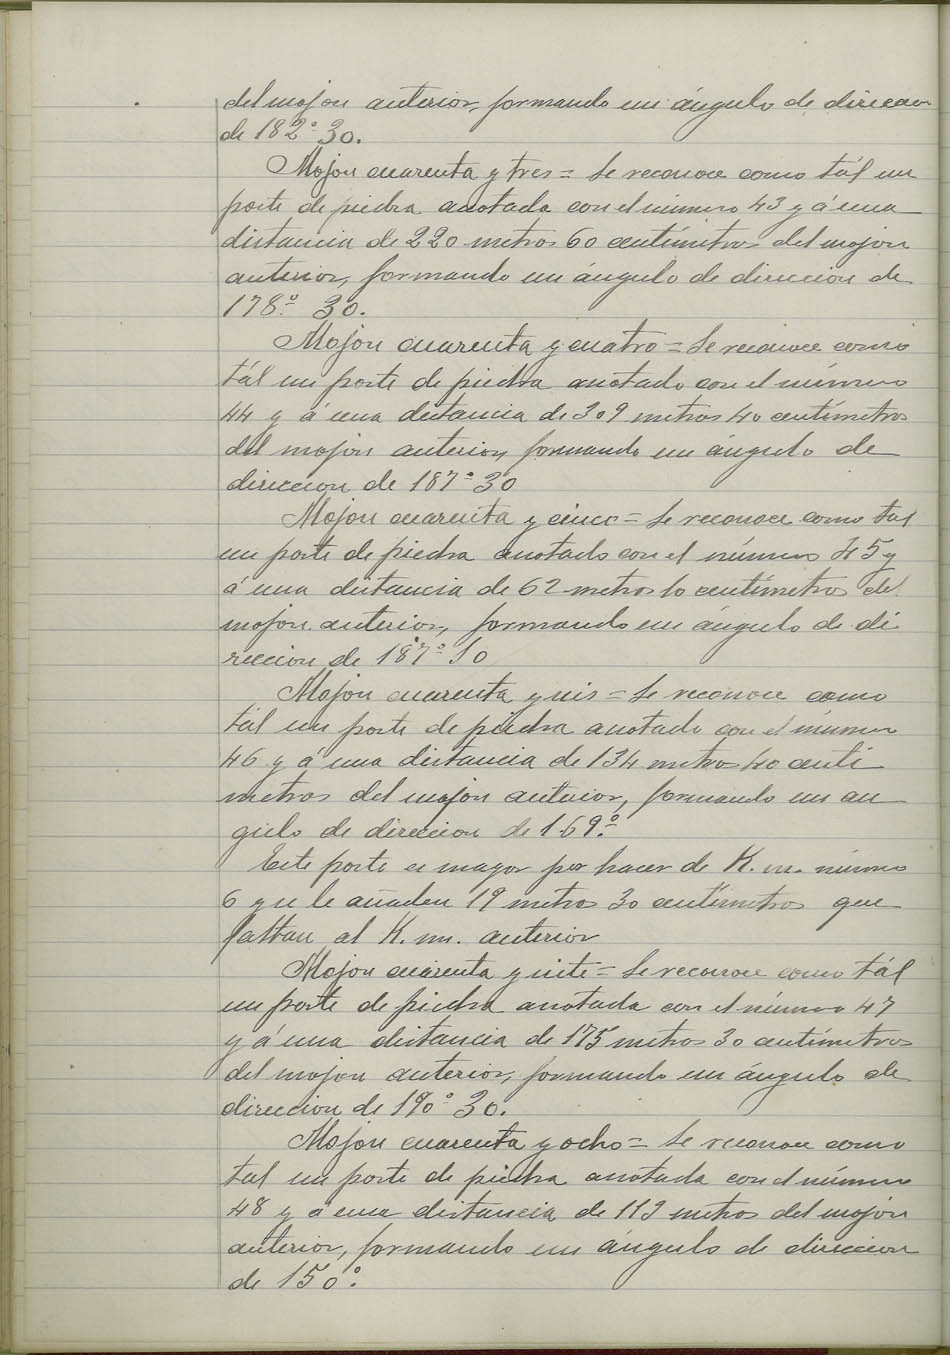 del mojon anterior, formando un ángulo de direccion
de 182° 30.
Mojon cuarenta y tres = Se reconoce como tál un
poste de piedra anotada con el número 43 y á una
distancia de 220 metros 60 centímetros del mojon
anterior, formando un ángulo de direccion de
178° 30.
Mojon cuarenta y cuatro = Se reconoce como
tál un poste de piedra anotado con el número
44 y á una distancia de 309 metros 40 centímetros
del mojon anterior, formando un ángulo de
direccion de 187° 30
Mojon cuarenta y cinco = Se reconoce como tal
un poste de piedra anotado con el número 45 y
á una distancia de 62 metros 10 centímetros del
mojon anterior, formando un ángulo de di
reccion de 187° 30
Mojon cuarenta y seis = Se reconoce como
tál un poste de piedra anotado con el número
46 y á una distancia de 134 metros 40 centi
metros del mojon anterior, formando un an
gulo de direccion de 169°
Este poste es mayor por hacer de K. m. número
6 y se le añaden 19 metros 30 centimetros que
faltan al K. m. anterior
Mojon cuarenta y siete = Se reconoce como tál
un poste de piedra anotada con el número 47
y á una distancia de 175 metros 30 centímetros
del mojon anterior, formando un ángulo de
direccion de 190° 30.
Mojon cuarenta y ocho = Se reconoce como
tal un poste de piedra anotada con el número
48 y á una distancia de 113 metros del mojón
anterior, formando un ángulo de direccion
de 150°.